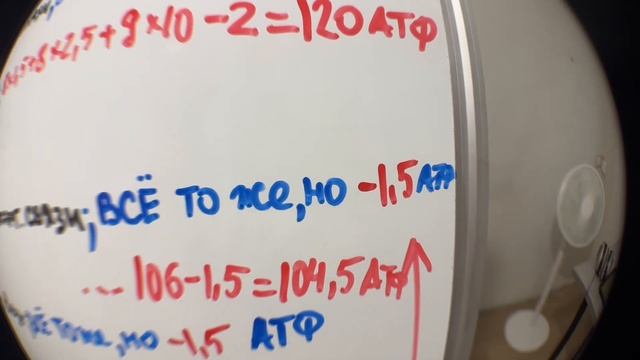 ×2,5+8×10-2=120 АТФ
ВСЁ ТО же, но -1,5 АТФ
... 106-1,5=104,5 АТФ
всё то же, но -1,5 АТФ